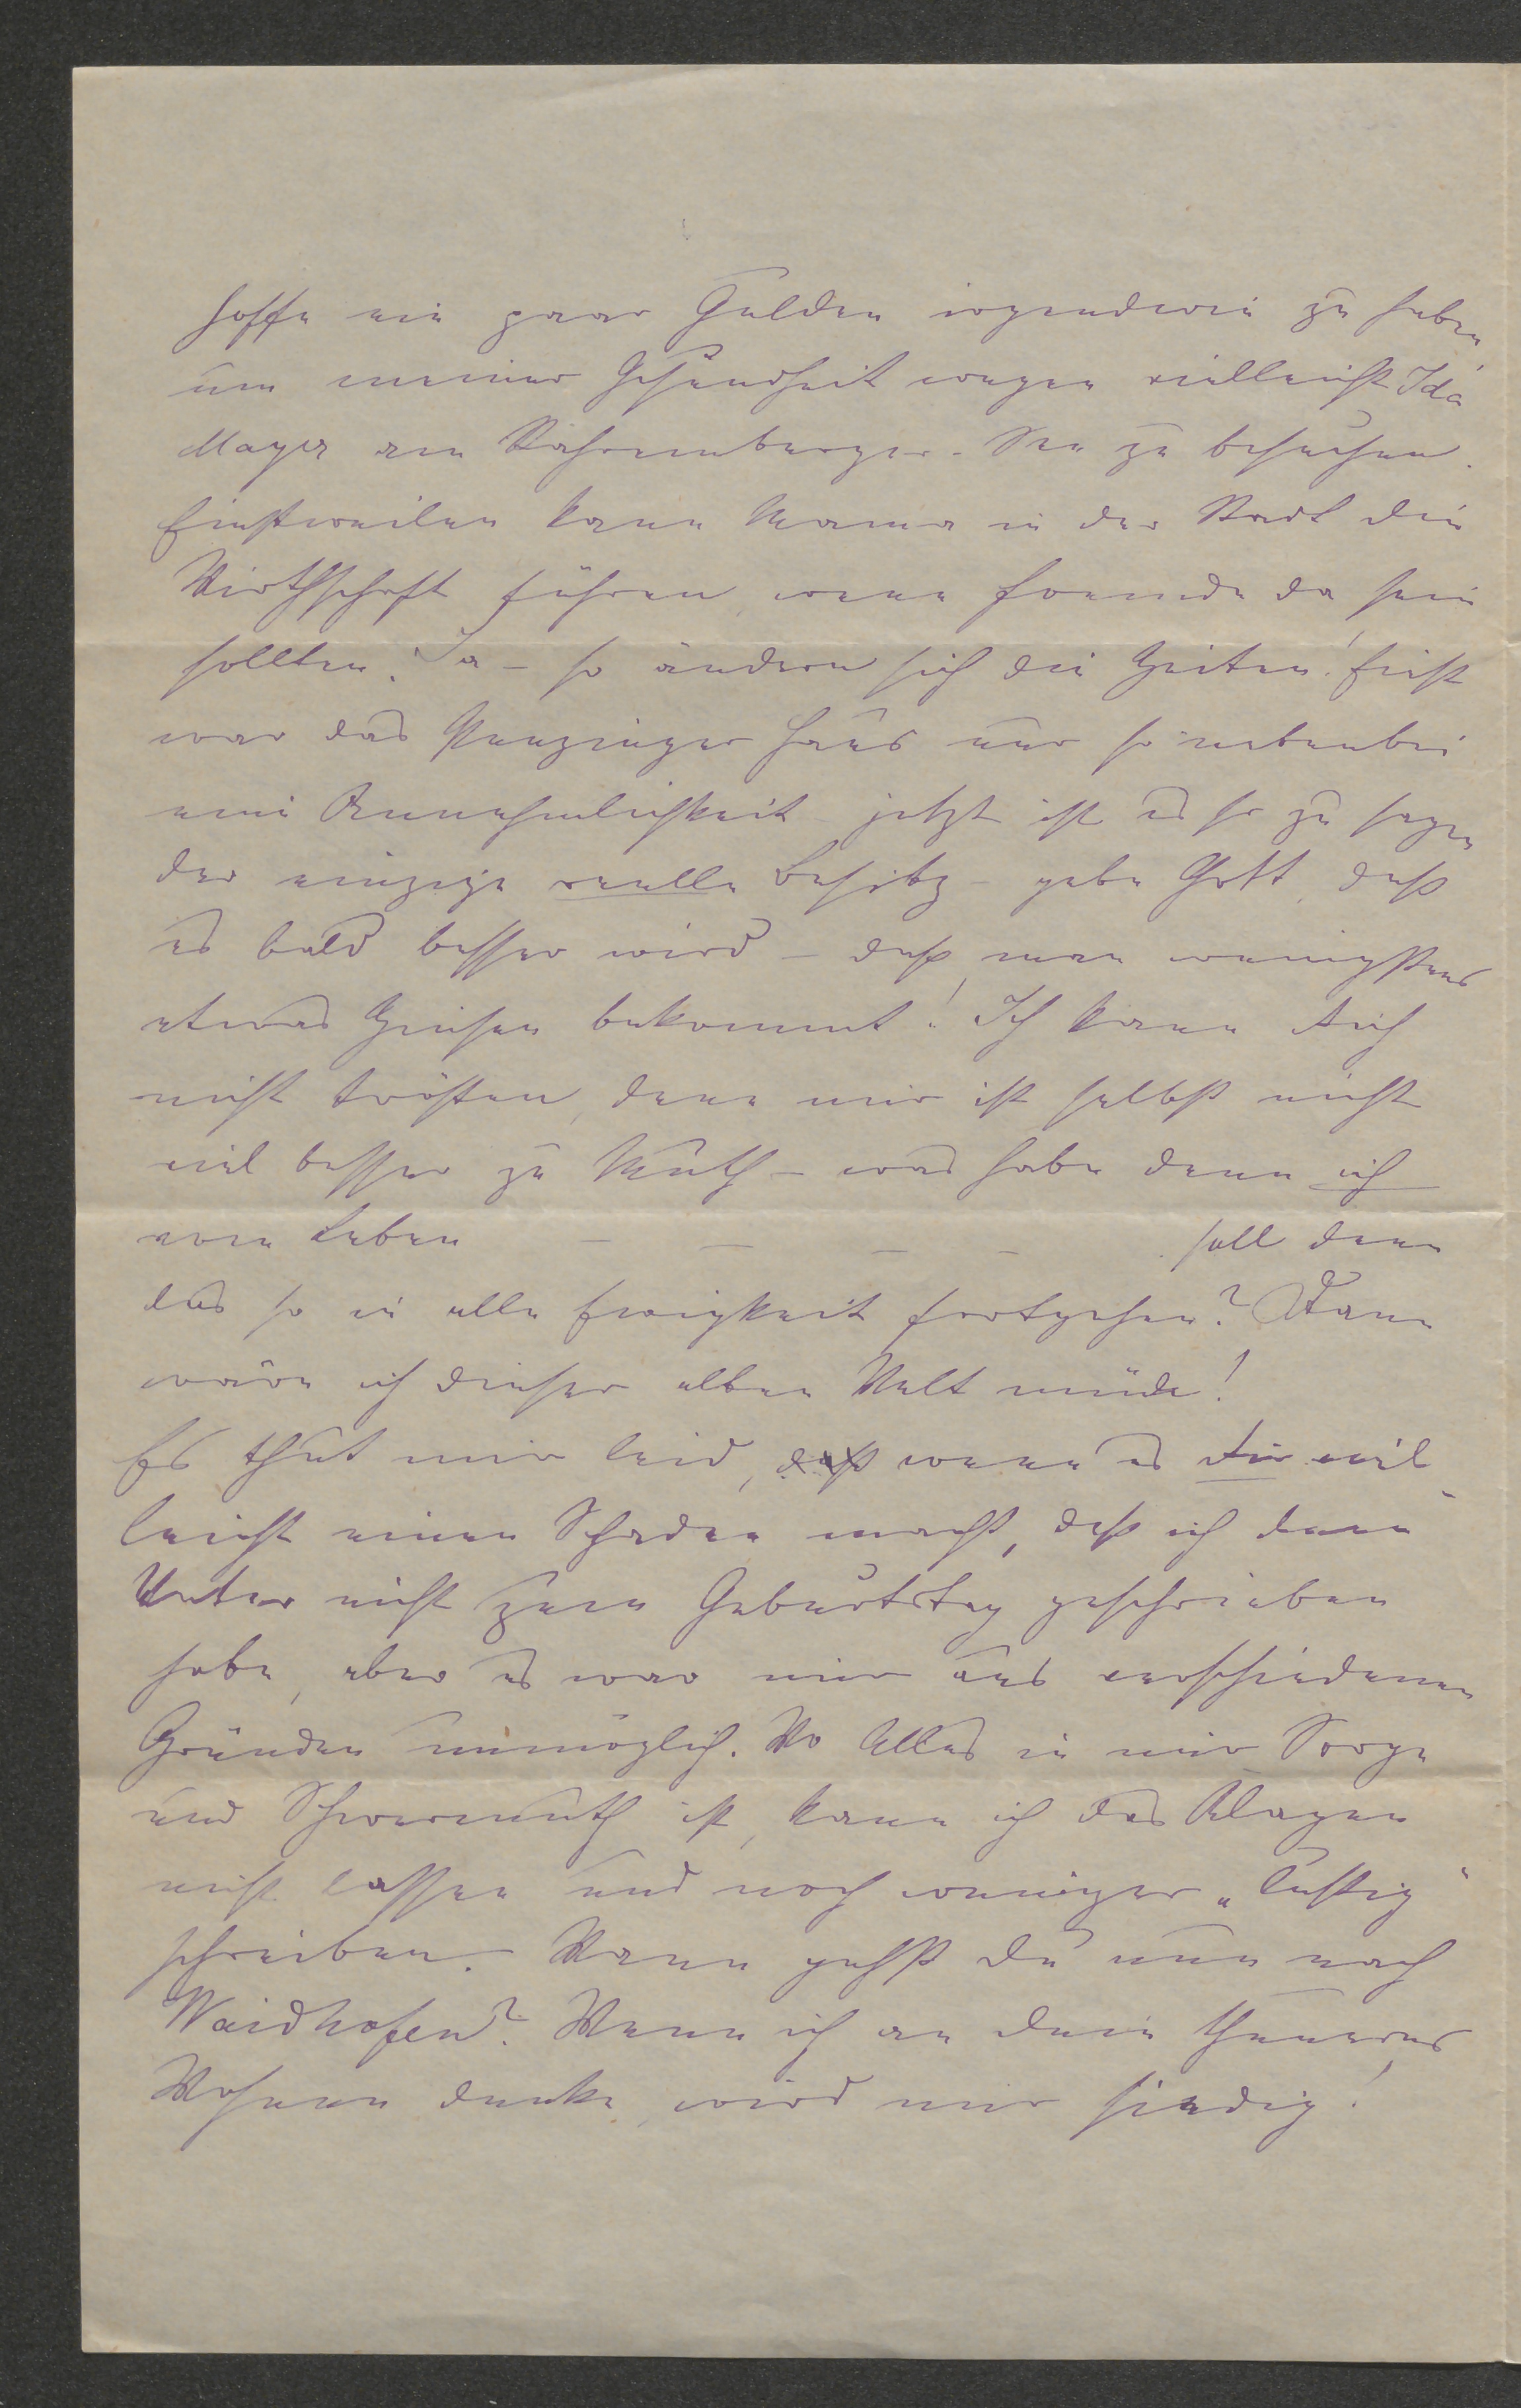 hoffe ein paar Gulden irgendwie zu haben
um meiner Gesundheit wegen vielleicht Ida
Mayer am Starhemberger-See zu besuchen.
Einstweilen kann Mama in der Stadt die
Wirthschaft führen, wenn Fremde da sein
sollten. Ja – so ändern sich die Zeiten! Einst
war das Penzinger Haus nur so nebenbei
eine Annehmlichkeit – jetzt ist es so zu sagen
der einzige reelle Besitz – gebe Gott, daß
es bald besser wird – daß man wenigstens
etwas Zinsen bekommt! Ich kann Dich
nicht trösten, denn mir ist selbst nicht
viel besser zu Muth – was habe denn ich
vom Leben – – – – soll denn
das so in alle Ewigkeit fortgehen? Dann
wäre ich dieser alten Welt müde!
Es thut mir leid, daß wenn es Dir viel
leicht einen Schaden macht, daß ich dem
Vater nicht zum Geburtstag geschrieben
habe, aber es war mir aus verschiedenen
Gründen unmöglich. Wo Alles in mir Sorge
und Schwermuth ist, kann ich das Klagen
nicht lassen und noch weniger „lustig“
schreiben. Wann gehst Du nun nach
Waidhofen? Wenn ich an Dein theueres
Wohnen denke, wird mir siedig!